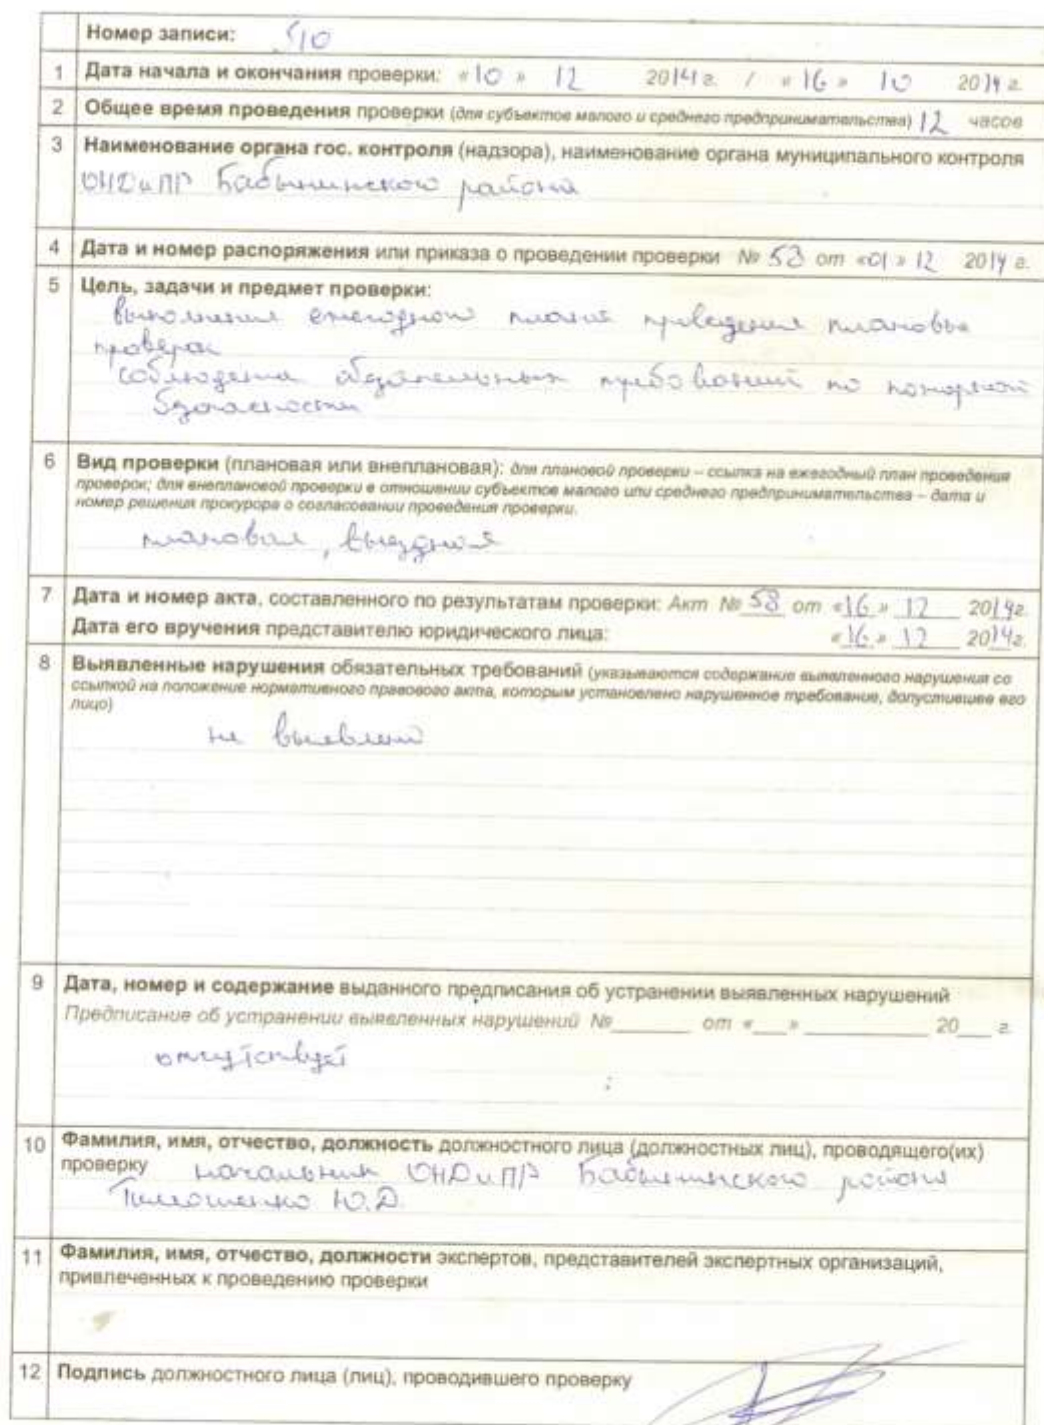 Номер записи: 510
1 Дата начала и окончания проверки: «10» 12 2014 г. / «16» 10 2014 г.
2 Общее время проведения проверки (для субъектов малого и среднего предпринимательства) 12 часов
3 Наименование органа гос. контроля (надзора), наименование органа муниципального контроля
ОНДиПР Бабынинского района
4 Дата и номер распоряжения или приказа о проведении проверки № 58 от «01» 12 2014 г.
5 Цель, задачи и предмет проверки:
выполнения ежегодного плана проведения плановых
проверок
соблюдения обязательных требований по пожарной
безопасности
6 Вид проверки (плановая или внеплановая): для плановой проверки – ссылка на ежегодный план проведения
проверок; для внеплановой проверки в отношении субъектов малого или среднего предпринимательства – дата и
номер решения прокурора о согласовании проведения проверки.
плановая, выездная
7 Дата и номер акта, составленного по результатам проверки: Акт № 58 от «16» 12 2014г.
Дата его вручения представителю юридического лица: «16» 12 2014г.
8 Выявленные нарушения обязательных требований (указываются содержание выявленного нарушения со
ссылкой на положение нормативного правового акта, которым установлено нарушенное требование, допустившее его
лицо)
не выявлено
9 Дата, номер и содержание выданного предписания об устранении выявленных нарушений
Предписание об устранении выявленных нарушений №______ от «___» __________ 20___ г.
отсутствует
10 Фамилия, имя, отчество, должность должностного лица (должностных лиц), проводящего(их)
проверку начальник ОНДиПР Бабынинского района
Тимошенко Ю.Д.
11 Фамилия, имя, отчество, должности экспертов, представителей экспертных организаций,
привлеченных к проведению проверки
12 Подпись должностного лица (лиц), проводившего проверку